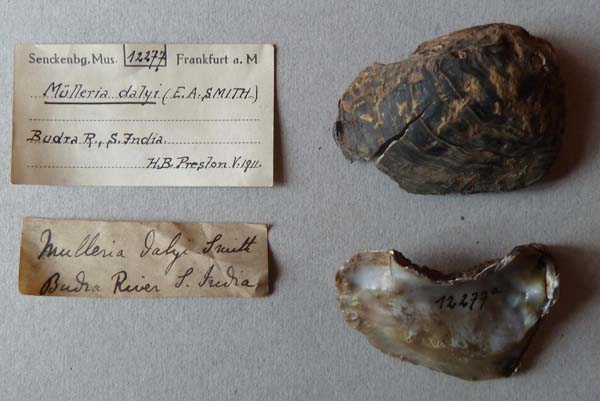 Senckenbg. Mus. 12277 Frankfurt a. M.
Mülleria dalyi (E.A. SMITH.)
Budra R., S. India
H.B. Preston V. 1911.
Mulleria dalyi Smith
Budra River S. India
12277a